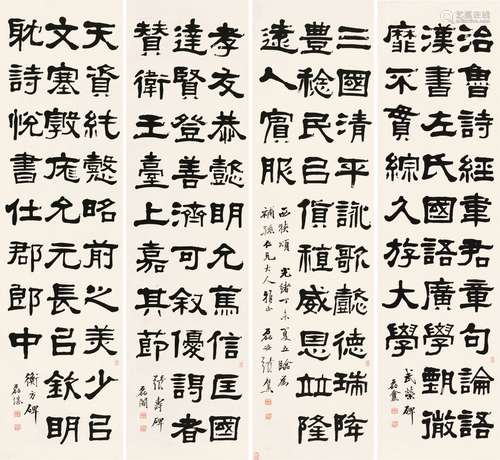 治魯詩經韋君章句論語
漢書左氏國語廣學甄微
靡不貫綜久游大學
武榮碑
磊盦
三國清平詠歌懿德瑞降
豐稔民㠯貨稙威恩並隆
遠人賓服
西狹頌 光緒丁未夏五臨為
補孫仁兄大人雅正
孝友恭懿明允篤信匡國
達賢登善濟可敘優謌者
贊衛王臺上嘉其節
張壽碑
天資純懿昭前之美少㠯
文塞敦庬允元長㠯欽明
耽詩悅書仕郡郎中
衡方碑